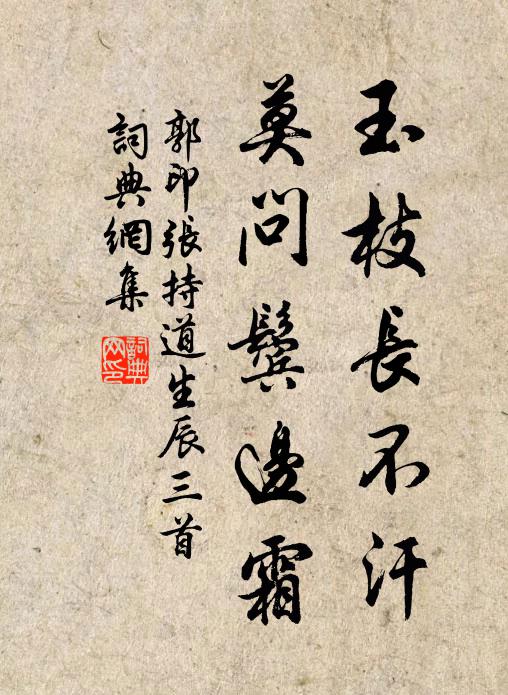 玉枝長不汗
莫問鬢邊霜
郭印張持道生辰三首
詞典網集
詞典
网印